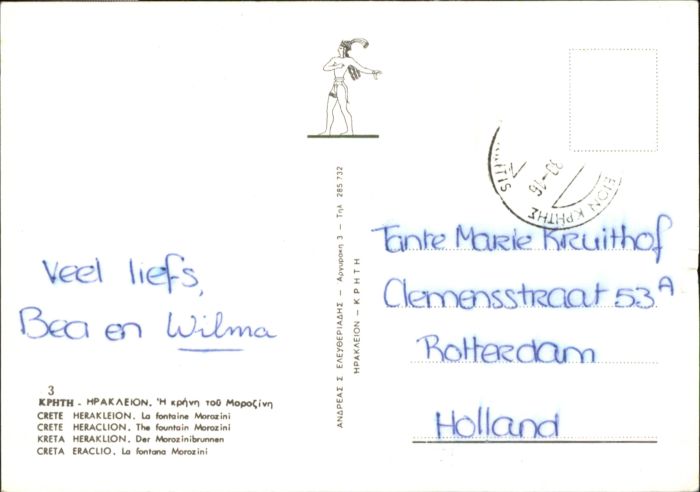 Veel liefs,
Bea en Wilma
3
ΚΡΗΤΗ - ΗΡΑΚΛΕΙΟΝ. Ἡ κρήνη τοῦ Μοροζίνη
CRETE HERAKLEION. La fontaine Morozini
CRETE HERACLION. The fountain Morozini
KRETA HERAKLION. Der Morozinibrunnen
CRETA ERACLIO. La fontana Morozini
ΑΝΔΡΕΑΣ Σ ΕΛΕΥΘΕΡΙΑΔΗΣ - Αργυράκη 3 - Τηλ 285 732
ΗΡΑΚΛΕΙΟΝ - ΚΡΗΤΗ
ΕΙΟΝ ΚΡΗΤΗΣ
SITIS
30-16
Tante Marie Kruithof
Clemensstraat 53A
Rotterdam
Holland